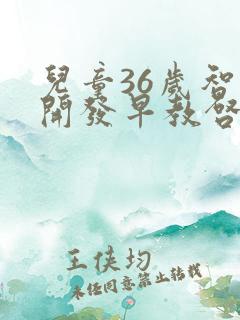 兒童36歲智
開發早教啓
王俠均
未經同意禁止轉載